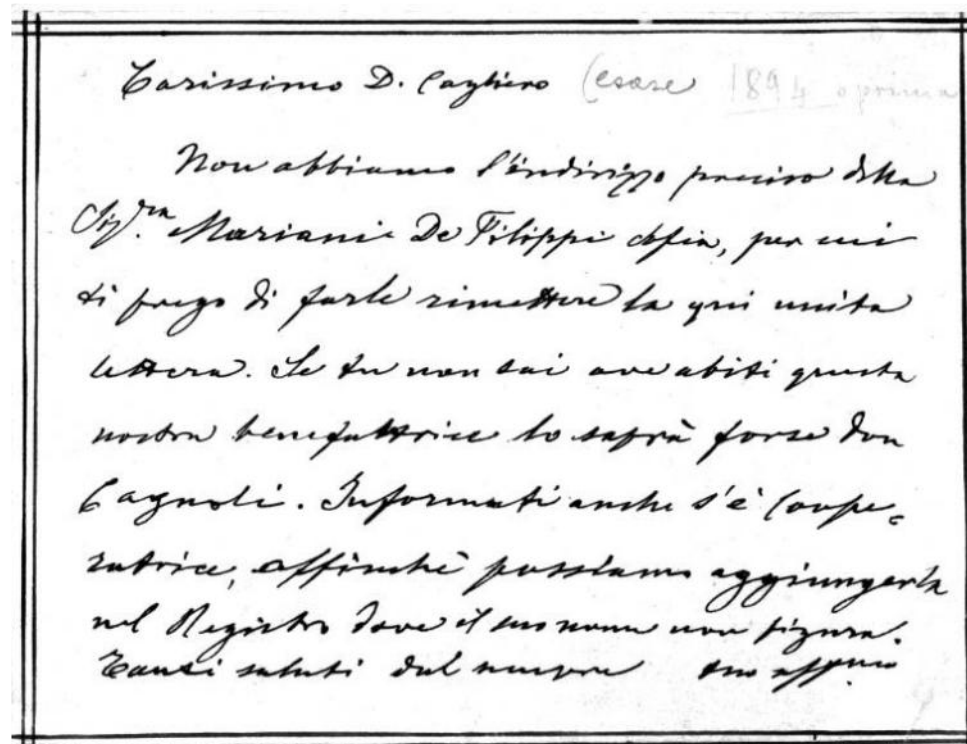 Carissimo D. Cagliero (Cesare 1894 o prima
Non abbiamo l'indirizzo preciso della
Sig.ra Mariani De Filippi Sofia, per cui
ti prego di farle rimettere la qui unita
lettera. Se tu non sai ove abiti questa
nostra benefattrice lo saprà forse don
Cagnoli. Informati anche s'è Coope=
ratrice, affinché possiamo aggiungerla
nel Registro dove il suo nome non figura.
Tanti saluti dal sempre tuo aff.mo